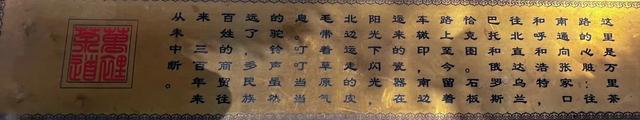 这里是万里茶
路的心脏:往
南通向张家口
和呼和浩特，
往北直达乌兰
巴托和俄罗斯
恰克图。石板
路上至今留着
车辙印，南边
运来的瓷器在
阳光下闪光，
北边运走的皮
毛带着草原气
息。叮叮当当
的驼铃声虽然
远了，多民族
百姓的商贸往
来，三百年来
从未中断。
萬里
茶道